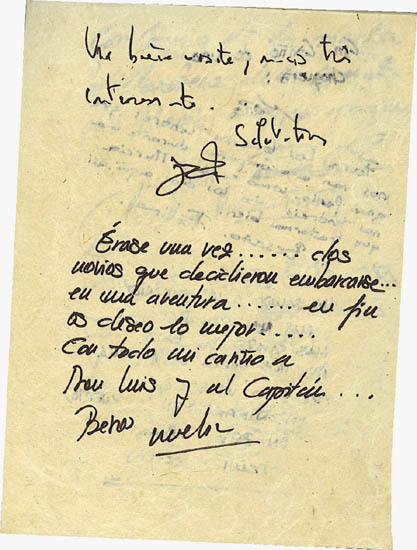 Une brève visite, mais très
intéressante.
Salutations
Érase una vez...... dos
novios que decidieron embarcarse...
en una aventura...... en fin
os deseo lo mejor......
Con todo mi cariño a
Don Luis y al Capitán...
Besos